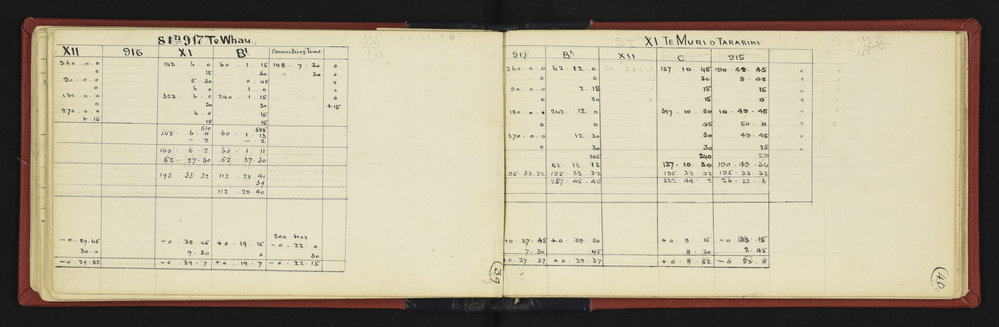 Stn 917 Te Whau
XII 916 XI B¹ Connecting Lines
360 . 0 . 0 143 . 6 . 0 60 . 1 . 15 148 . 7 . 30 0
0 15 30 0 30 0
90 . 0 . 0 5 . 30 0 . 45 0
0 6 . 0 1 . 0 0
180 . 0 . 0 323 . 6 . 0 240 . 1 . 15 0
0 30 30 + 15
270 . 0 . 0 6 . 0 15
+ 15 15 15
510 585
143 . 6 . 4 60 . 1 . 13
- 2 - 2
143 . 6 . 2 60 . 1 . 11
52 . 27 . 30 52 . 27 . 30
195 . 33 . 32 112 . 28 . 41
39
112 . 28 . 40
Sea Hoz
- 0 . 29 . 45 - 0 . 38 . 45 + 0 . 19 . 15 - 0 . 22 . 0
30 . 0 9 . 30 0 30
- 0 . 29 . 52 - 0 . 39 . 7 + 0 . 19 . 7 - 0 . 22 . 15
39
XI Te Muri o Tarariki
917 B¹ XII C 915
360 . 0 . 0 62 . 12 . 0 137 . 10 . 45 190 . 49 . 45
0 0 0 30 9 . 45
90 . 0 . 0 2 . 15 15 15
0 30 15 0
180 . 0 . 0 242 . 12 . 0 317 . 10 . 30 10 . 49 . 45
0 0 45 50 . 0
270 . 0 . 0 12 . 30 30 49 . 45
0 30 30 15
165 240
62 . 12 . 13 137 . 10 . 30 190 . 49 . 34
195 . 33 . 32 195 . 33 . 32 195 . 33 . 32 195 . 33 . 32
257 . 45 . 45 332 . 44 . 2 26 . 23 . 6
+ 0 . 37 . 45 + 0 . 39 . 30 + 0 . 9 . 15 - 0 . 53 . 15
7 . 30 45 8 . 30 2 . 45
+ 0 . 37 . 37 + 0 . 39 . 37 + 0 . 8 . 52 - 0 . 53 . 0
40